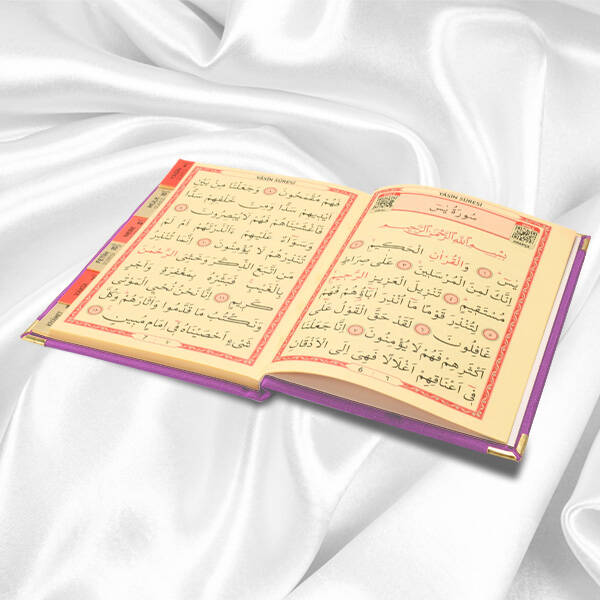 YÂSÎN SÛRESİ
سُورَةُ يٰسٓ
بِسْمِ اللّٰهِ الرَّحْمٰنِ الرَّحِيمِ
يٰسٓ ﴿١﴾ وَالْقُرْاٰنِ الْحَكِيمِ ﴿٢﴾
اِنَّكَ لَمِنَ الْمُرْسَلِينَ ﴿٣﴾ عَلٰى صِرَاطٍ
مُسْتَقِيمٍ ﴿٤﴾ تَنْزِيلَ الْعَزِيزِ الرَّحِيمِ ﴿٥﴾
لِتُنْذِرَ قَوْمًا مَٓا اُنْذِرَ اٰبَٓاؤُهُمْ فَهُمْ
غَافِلُونَ ﴿٦﴾ لَقَدْ حَقَّ الْقَوْلُ عَلٰٓى
اَكْثَرِهِمْ فَهُمْ لَا يُؤْمِنُونَ ﴿٧﴾ اِنَّا جَعَلْنَا
فِٓي اَعْنَاقِهِمْ اَغْلَالًا فَهِيَ اِلَى الْاَذْقَانِ
6 ٦
YÂSÎN SÛRESİ
فَهُمْ مُقْمَحُونَ ﴿٨﴾ وَجَعَلْنَا مِنْ بَيْنِ
اَيْدِيهِمْ سَدًّا وَمِنْ خَلْفِهِمْ سَدًّا
فَاَغْشَيْنَاهُمْ فَهُمْ لَا يُبْصِرُونَ ﴿٩﴾
وَسَوَٓاءٌ عَلَيْهِمْ ءَاَنْذَرْتَهُمْ اَمْ لَمْ
تُنْذِرْهُمْ لَا يُؤْمِنُونَ ﴿١٠﴾ اِنَّمَا تُنْذِرُ
مَنِ اتَّبَعَ الذِّكْرَ وَخَشِيَ الرَّحْمٰنَ
بِالْغَيْبِ فَبَشِّرْهُ بِمَغْفِرَةٍ وَاَجْرٍ
كَرِيمٍ ﴿١١﴾ اِنَّا نَحْنُ نُحْيِ الْمَوْتٰى
وَنَكْتُبُ مَا قَدَّمُوا وَاٰثَارَهُمْ وَكُلَّ
شَيْءٍ اَحْصَيْنَاهُ فِٓي اِمَامٍ مُبِينٍ ﴿١٢﴾
7 ٧
MÜLK
FETİH